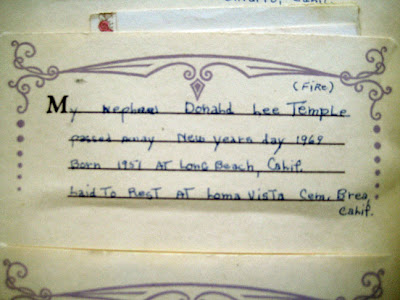 (FiRe)
My Nephew Donald Lee Temple
passed away New years day 1969
Born 1957 At Long Beach, Calif.
Laid To Rest At Loma Vista Cem. Brea,
Calif.